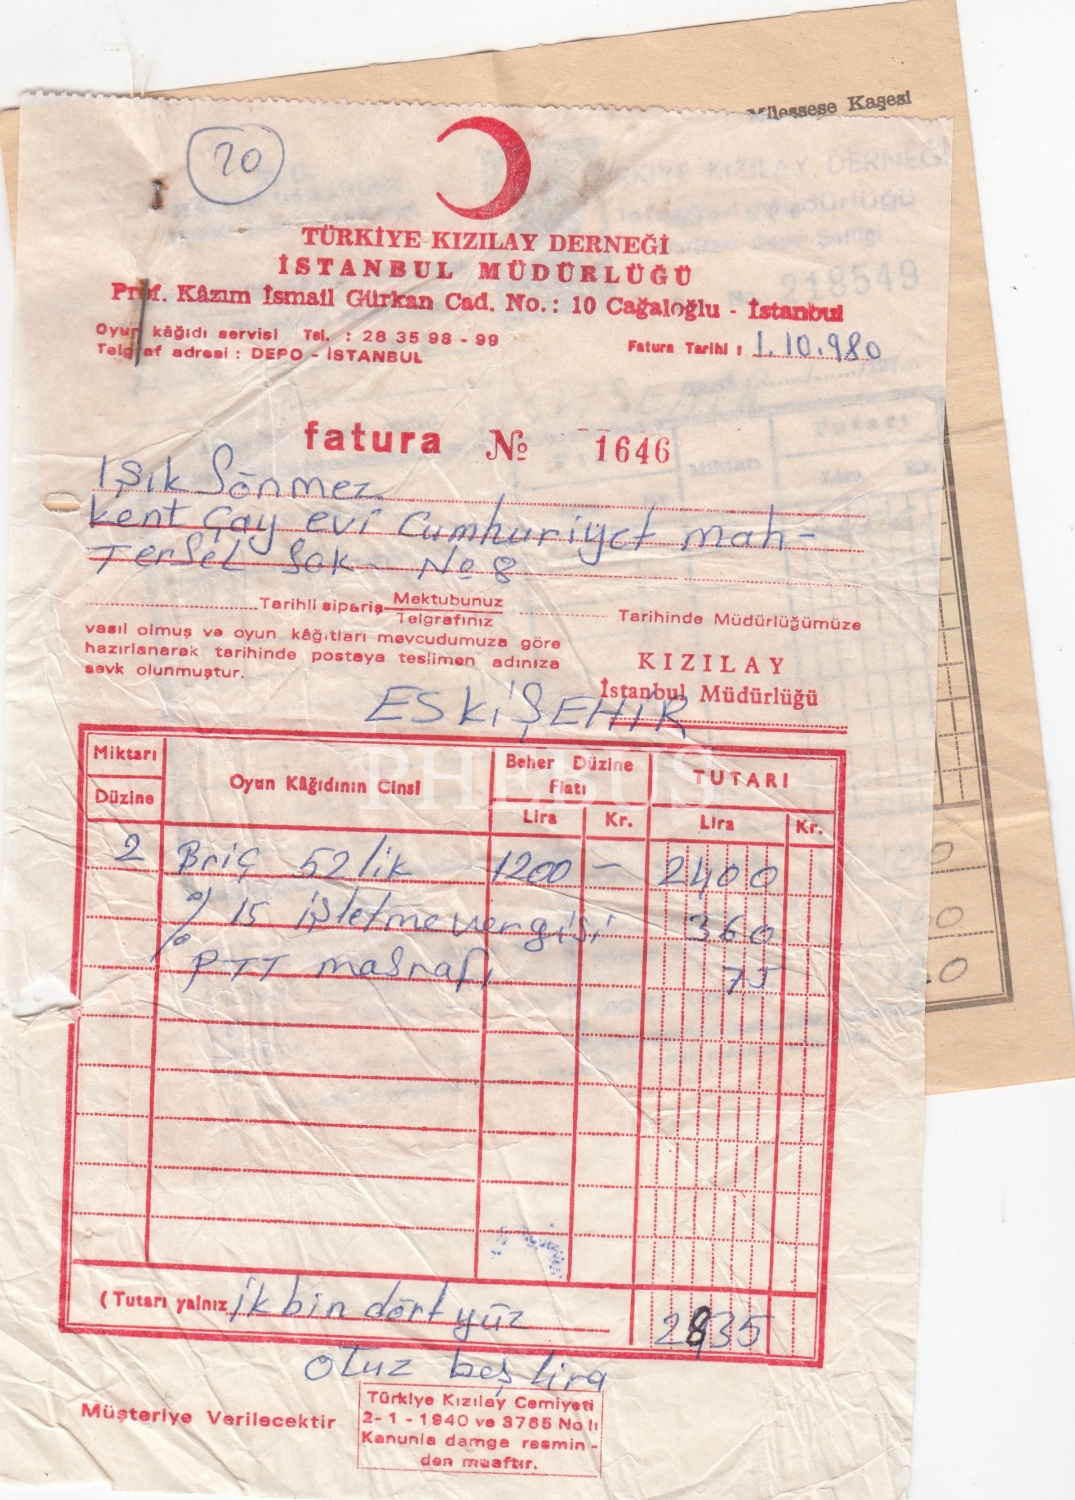 Müessese Kaşesi
20
TÜRKİYE KIZILAY DERNEĞİ
218549
TÜRKİYE KIZILAY DERNEĞİ
İSTANBUL MÜDÜRLÜĞÜ
Prof. Kâzım İsmail Gürkan Cad. No.: 10 Cağaloğlu - İstanbul
Oyun kâğıdı servisi Tel. : 28 35 98 - 99
Telgraf adresi : DEPO - İSTANBUL
Fatura Tarihi : 1.10.980
fatura № 1646
Işık Sönmez
Kent Çay evi Cumhuriyet mah-
Tersel Sok- No 8
Tarihli sipariş Mektubunuz Tarihinde Müdürlüğümüze
Telgrafınız
vasıl olmuş ve oyun kâğıtları mevcudumuza göre
hazırlanarak tarihinde postaya teslimen adınıza
sevk olunmuştur.
KIZILAY
İstanbul Müdürlüğü
ESKİŞEHİR
Miktarı
Düzine
Oyun Kâğıdının Cinsi
Beher Düzine
Fiatı
Lira Kr.
TUTARI
Lira Kr.
2 Briç 52 lik 1200 — 2400
% 15 işletme vergisi 360
% PTT masrafı 75
(Tutarı yalnız ikbin dört yüz 2835
otuz beş lira
PHEBUS
Müşteriye Verilecektir
Türkiye Kızılay Cemiyeti
2-1-1940 ve 3765 No lı
Kanunla damga resmin-
den muaftır.